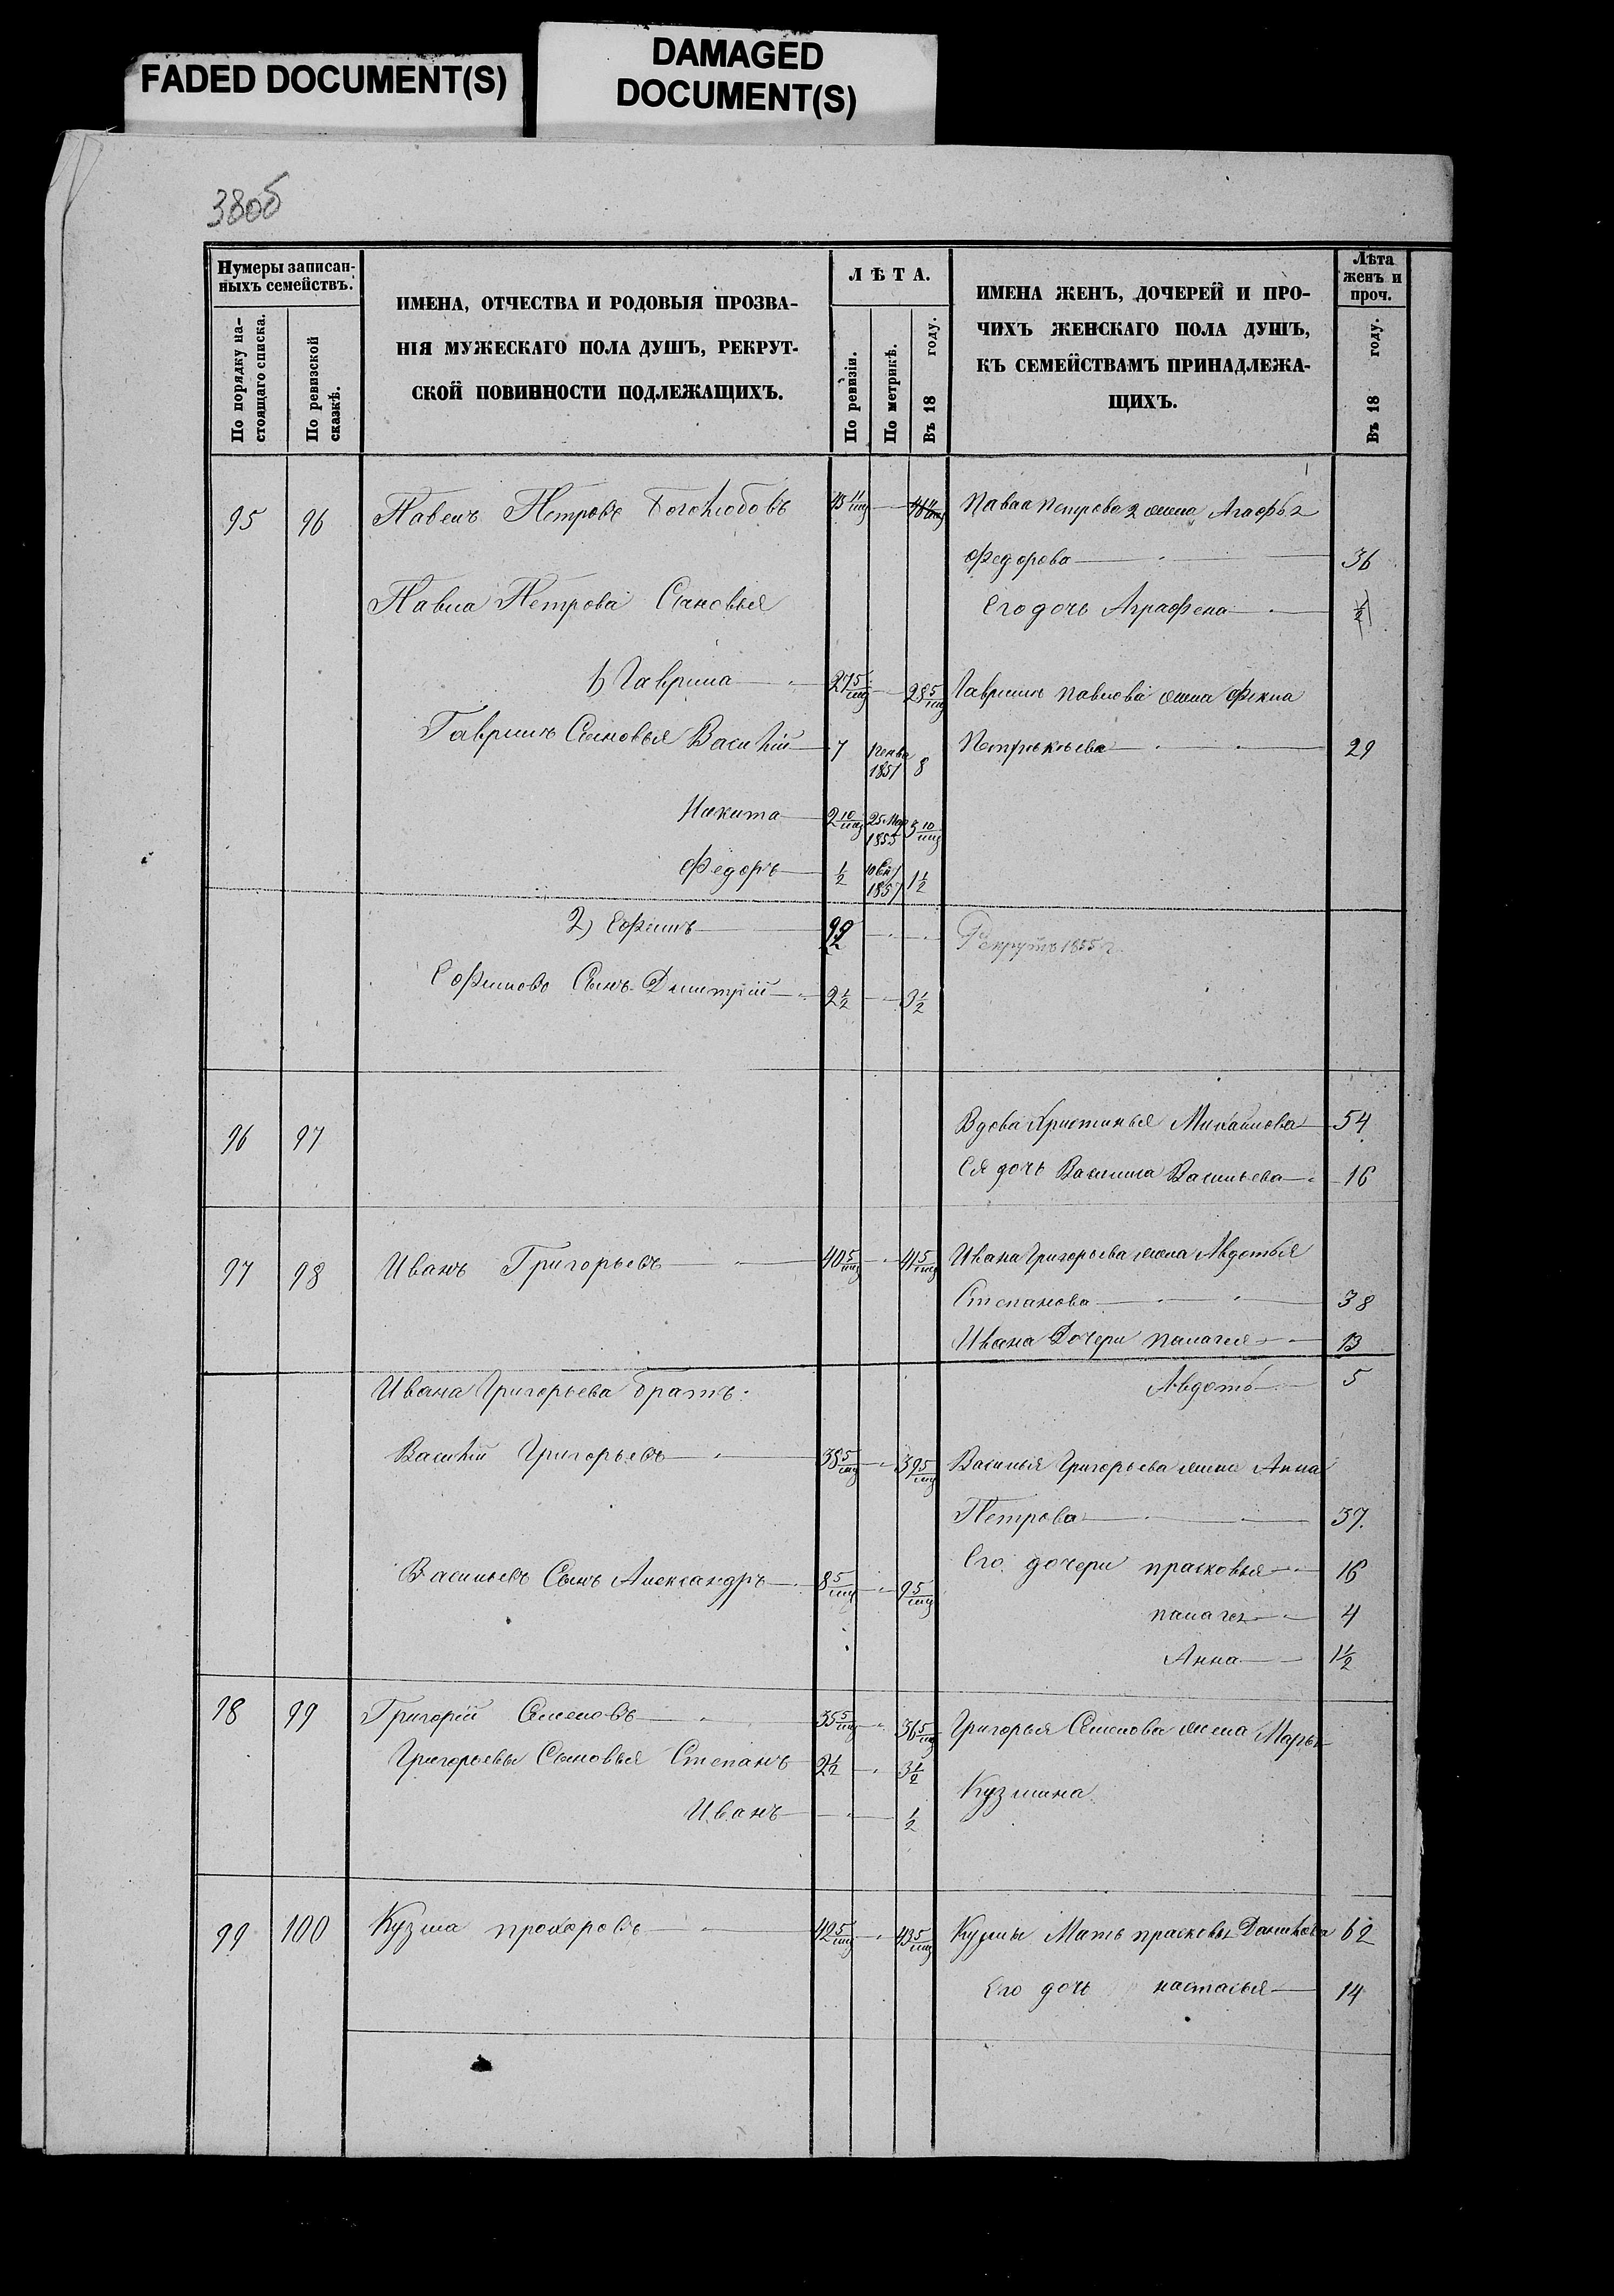 FADED DOCUMENT(S)
DAMAGED
DOCUMENT(S)
38об
Нумеры записан-
ныхъ семействъ.
По порядку на-
стоящаго списка.
По ревизской
сказкѣ.
ИМЕНА, ОТЧЕСТВА И РОДОВЫЯ ПРОЗВА-
НІЯ МУЖЕСКАГО ПОЛА ДУШЪ, РЕКРУТ-
СКОЙ ПОВИННОСТИ ПОДЛЕЖАЩИХЪ.
ЛѢТА.
По ревизіи.
По метрикѣ.
Въ 18 году.
ИМЕНА ЖЕНЪ, ДОЧЕРЕЙ И ПРО-
ЧИХЪ ЖЕНСКАГО ПОЛА ДУШЪ,
КЪ СЕМЕЙСТВАМЪ ПРИНАДЛЕЖА-
ЩИХЪ.
Лѣта
женъ и
проч.
Въ 18 году.
95 96 Павелъ Петровъ Боголюбовъ 45 11/мц Павла Петрова 2 жена Агафья
Федорова 36
Павла Петрова Сыновья Его дочь Аграфена 1/2
1) Гаврила 27 5/мц 28 5/мц Гаврилы Павлова жена Фекла
Гаврилы Сыновья Василій 7 1851 8 29
Никита 2 10/мц 25 Мар 1855 3 10/мц
Федоръ 1/2 1857 1 1/2
2) Ефимъ Рекрутъ 1855 г.
Ефимова Сынъ Дмитрій 2 1/2 3 1/2
96 97 Вдова Христинья Михайлова 54
Ея дочь Василиса Васильева 16
97 98 Иванъ Григорьевъ 40 5/мц 41 5/мц Ивана Григорьева жена Авдотья
Степанова 38
Ивана Дочери Палагея 13
Ивана Григорьева братъ Авдоть 5
Василій Григорьевъ 38 5/мц 39 5/мц Василья Григорьева жена Анна
Петрова 37.
Его дочери прасковья 16
Васильевъ Сынъ Александръ 8 5/мц 9 5/мц
палагея 4
Анна 1 1/2
98 99 Григорій Семеновъ 35 5/мц 36 5/мц Григорья Семенова жена Марья
Григорьевы Сыновья Степанъ 2 1/2 3 1/2
Кузмина
Иванъ 1/2
99 100 Кузма прохоровъ 42 5/мц 43 5/мц Кузмы Мать прасковья Данилова 62
Его дочь настасья 14